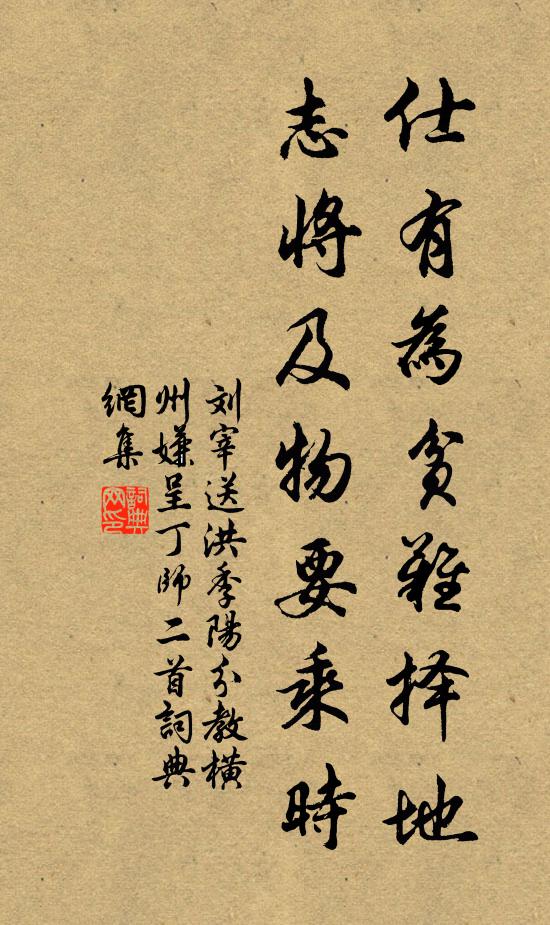 仕有為貧難择地
志將及物要乘時
刘宰送洪季陽分教橫
州嫌呈丁師二首詞典
網集
詞典网印